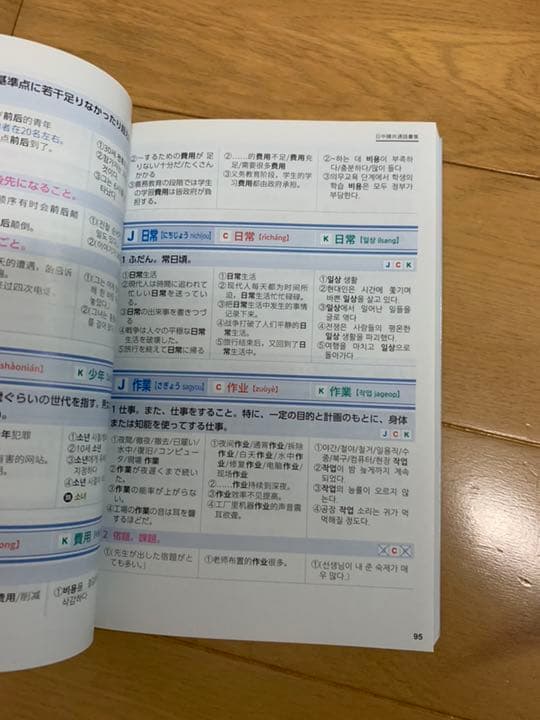 基準点に若干足りなかったり
前后的青年
者在20名左右。
点前后到了。
①30세
後先になること。
顺序有时会前后颠
颠倒。
ごと。
的遭遇，
过四次电
shàonián)
K 少年
ぐらいの世代を指す。男
年犯罪
害的网站。
①소년 시절
②10세 소년
③현대
지경하다
④소년 시절
소녀
ong)
K 費用
费用/削减
①비용을
삭감하다
日中韓共通語彙集
②～するための費用が足りない/十分だ/たくさんかかる
③義務教育の段階では学生の学習費用は政府が負担する。
②……的费用不足/费用充足/需要很多费用
③义务教育阶段，学生的学习费用都由政府承担。
②~하는 데 비용이 부족하다/충분하다/많이 들다
③의무교육 단계에서 학생의 학습 비용은 모두 정부가 부담한다.
J 日常 [にちじょう nichijou] C 日常 (rìcháng) K 日常 [일상 ilsang]
1 ふだん。常日頃。
J C K
①日常生活
②現代人は時間に追われて忙しい日常を送っている。
③日常の出来事を書きつづる
④戦争は人々の平穏な日常生活を破壊した。
⑤旅行を終えて日常に帰る
①日常生活
②现代人每天都为时间所迫，日常生活忙忙碌碌。
③把日常生活中发生的事情记录下来。
④战争打破了人们平静的日常生活。
⑤旅行结束后，又回到了日常生活中。
①일상 생활
②현대인은 시간에 쫓기며 바쁜 일상을 살고 있다.
③일상에서 일어난 일들을 글로 엮다
④전쟁은 사람들의 평온한 일상 생활을 파괴했다.
⑤여행을 마치고 일상으로 돌아가다
J 作業 [さぎょう sagyou] C 作业 (zuòyè) K 作業 [작업 jageop]
1 仕事。また、仕事をすること。特に、一定の目的と計画のもとに、身体
または知能を使ってする仕事。
J C K
①夜間/徹夜/撤去/日雇い/水中/復旧/コンピュータ/現場 作業
②作業が夜遅くまで続いた。
③作業の能率が上がらない。
④工場の作業の音は耳を聾するほどだ。
①夜间作业/通宵作业/拆除作业/白天作业/水中作业/修复作业/电脑作业/现场作业
②……作业持续到深夜。
③作业效率不见提高。
④工厂里机器作业的声音震耳欲聋。
①야간/철야/철거/일용직/수중/복구/컴퓨터/현장 작업
②작업이 밤 늦게까지 계속되었다.
③작업의 능률이 오르지 않는다.
④공장 작업 소리는 귀가 먹먹해질 정도다.
2 宿題。課題。
J C K
①(先生が出した宿題がとても多い。)
①老师布置的作业很多。
①(선생님이 내 준 숙제가 매우 많다.)
95